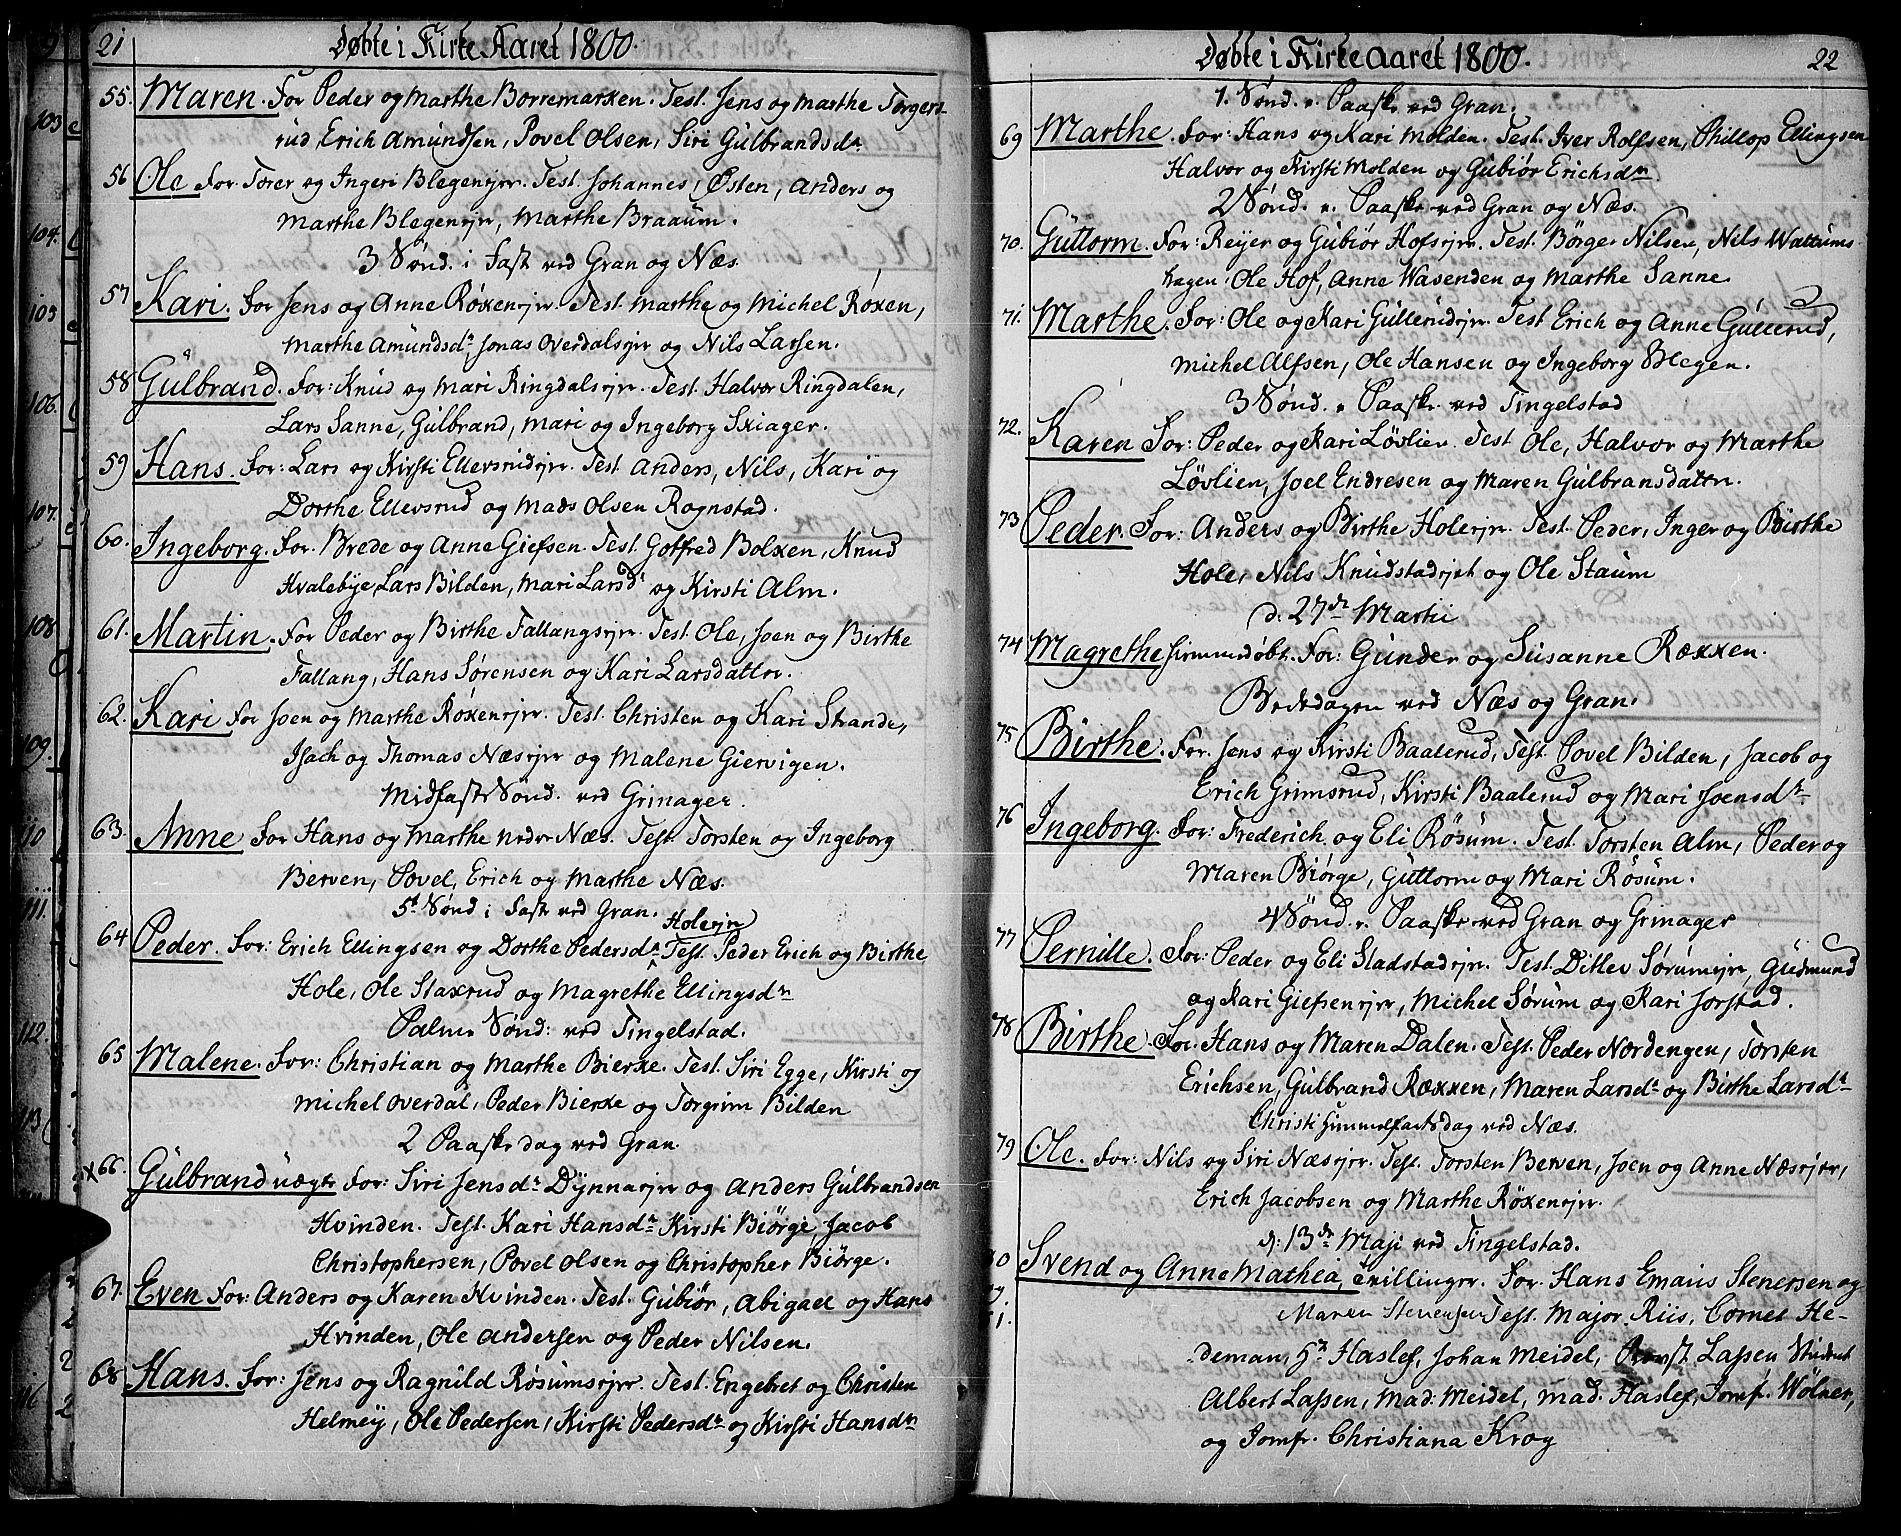 21
Døbte i Kirke Aaret 1800.
55. Maren. For Peder og Marthe Borremarken. Test. Jens og Marthe Torgers-
rud, Erich Amundsen, Povel Olsen, Siri Gulbrandsdr
56 Ole For Torer og Ingeri Blegenejer. Test. Johannes, Østen, Anders og
Marthe Blegenejer, Marthe Braaum.
3 Sønd. i Fast ved Gran og Næs.
57 Kari. For Jens og Anne Røkenejer. Test. Marthe og Michel Røken,
Marthe Amundsdr Jonas Overdalsejer og Nils Larsen.
58 Gulbrand. For: Knud og Mari Ringdalsejer. Test. Halvor Ringdalen,
Lars Sanne, Gulbrand, Mari og Ingeborg Skiager.
59 Hans. For: Lars og Kirsti Ellevsrudejer. Test. Anders, Nils, Kari og
Dorthe Ellevsrud og Mads Olsen Rognstad.
60. Ingeborg. For. Brede og Anne Giefsen. Test. Gotfred Bolken, Knud
Hvalebye, Lars Bilden, Mari Larsdr og Kirsti Alm.
61. Martin. For Peder og Birthe Fallangsejer. Test. Ole, Joen og Birthe
Fallang, Hans Sørensen og Kari Larsdatter.
62. Kari For Joen og Marthe Røkenejer. Test. Christen og Kari Strande,
Isach og Thomas Næsejer og Malene Giervigen.
Midfaste Sønd. ved Grinager.
63. Anne For Hans og Marthe nedre Næs. Test. Torsten og Ingeborg
Berven, Povel, Erich og Marthe Næs.
5t Sønd i Fast ved Gran.
Holeejer
64 Peder. For: Erich Ellingsen og Dorthe Pedersdr Test. Peder Erich og Birthe
Hole, Ole Staxrud og Magrethe Ellingsdr
Palme Sønd: ved Tingelstad.
65 Malene. For: Christian og Marthe Bierke. Test. Siri Egge, Kirsti og
Michel Overdal, Peder Bierke og Torgrim Bilden
2 Paaske dag ved Gran.
x 66. Gulbrand uægte For: Siri Jensdr Dynnaejer og Anders Gulbrandsen
Hvinden. Test. Kari Hansdr Kirsti Biørge, Jacob
Christophersen, Povel Olsen og Christopher Biørge.
67. Even For: Anders og Karen Hvinden. Test. Gubiør, Abigael og Hans
Hvinden, Ole Andersen og Peder Nilsen.
68. Hans. For: Jens og Ragnild Røsumsejer. Test. Engebret og Christen
Helmey, Ole Pedersen, Kirsti Pedersdr og Kirsti Hansdr
22
Døbte i Kirke Aaret 1800.
1. Sønd. e. Paaske ved Gran.
69 Marthe. For: Hans og Kari Molden. Test. Iver Rolfsen, Phillop Ellingsen
Halvor og Kirsti Molden og Gubiør Erichsdr.
2 Sønd. e. Paaske ved Gran og Næs.
70. Guttorm. For: Reyer og Gubiør Hofsejer. Test. Børger Nilsen, Nils Wattums
hagen Ole Hof, Anne Wasenden og Marthe Sanne
71. Marthe. For: Ole og Kari Gullerudejer. Test Erich og Anne Gullerud,
Michel Alfsen, Ole Hansen og Ingeborg Blegen.
3 Sønd. e Paaske. ved Tingelstad
72. Karen For: Peder og Kari Løvlien. Test Ole, Halvor og Marthe
Løvlien, Joel Endresen og Maren Gulbransdatter.
73 Peder. For: Anders og Birthe Holeejer. Test. Peder, Inger og Birthe
Hole, Nils Knudstadejet og Ole Staum
d. 27de Martii
74 Magrethe hiemmedøbt. For: Gunder og Susanne Rækken.
Bededagen ved Næs og Gran.
75 Birthe. For. Jens og Kirsti Baalerud, Test. Povel Bilden, Jacob og
Erich Grimsrud, Kirsti Baalerud og Mari Joensdr
76 Ingeborg. For: Frederich og Eli Røsum. Test. Torsten Alm, Peder og
Maren Biørge, Guttorm og Mari Røsum.
4 Sønd. e. Paaske ved Gran og Grinager
77 Pernille. For: Peder og Eli Stadstadejer. Test. Ditlev Sørumejer, Gudmund
og Kari Giefsenejer, Michel Sørum og Kari Jorstad.
78 Birthe. For. Hans og Maren Dalen. Test. Peder Nordengen, Torsten
Erichsen, Gulbrand Rækken, Maren Larsdr og Birthe Larsdr
Christi Himmelfarts dag ved Næs.
79 Ole. For: Nils og Siri Næsejer. Test. Torsten Berven, Joen og Anne Næsejer,
Erich Jacobsen og Marthe Røkenejer.
d: 13de Maji ved Tingelstad.
80 Svend og Anne Mathea, Tvillinger. For: Hans Emaus Stenersen og
og Maren Stenersen Test. Major Riis, Cornet He-
1. deman, Hr Haslef, Johan Meidel, Provst Lassen Student
Albert Lassen, Mad. Meidel, Mad. Haslef, Jomf. Wølner,
og Jomfr. Christiana Krog
103
104.
105
106.
107.
108
109.
110
111.
112.
113
116